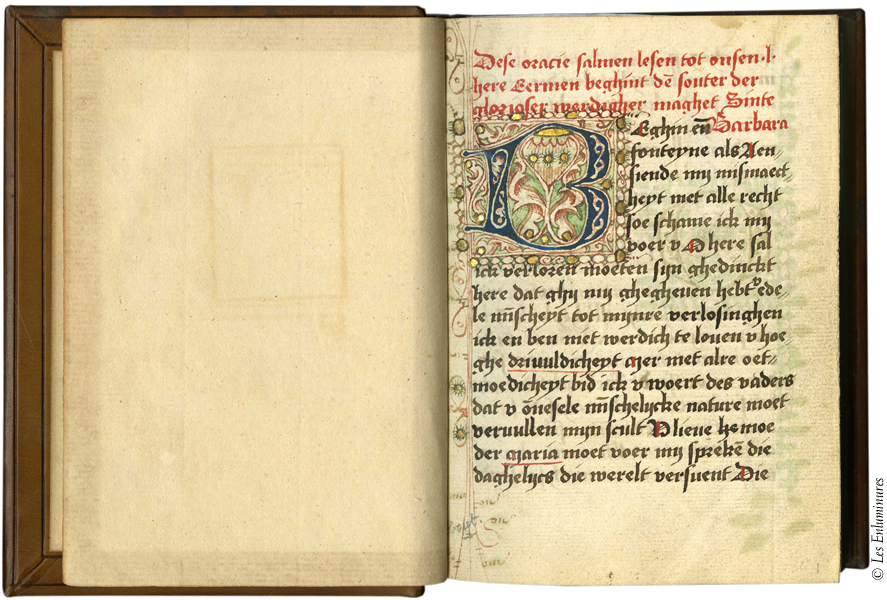 Dese oracie salmen lesen tot onsen .l.
here Eermen beghint dē souter der
glorioser werdegher maghet Sinte
Barbara
BEghin eñ
fonteyne als Aen⸗
siende mij mismaect⸗
heyt met alle recht
soe schame ick mij
voer v O here sal
ick verloren moeten sijn ghedinckt
here dat ghij mij ghegheuen hebt v ede⸗
le m̄scheyt tot mijnre verlosinghen
ick en ben niet werdich te louen v hoe⸗
ghe driuuldicheyt Mer met alre oet⸗
moedicheyt bid ick v woert des vaders
dat v ōnesele m̄schelycke nature moet
veruullen mijn scult O lieue he moe
der maria moet voer mij sprekē die
daghelijcs die werelt versuent Die
© Les Enluminures